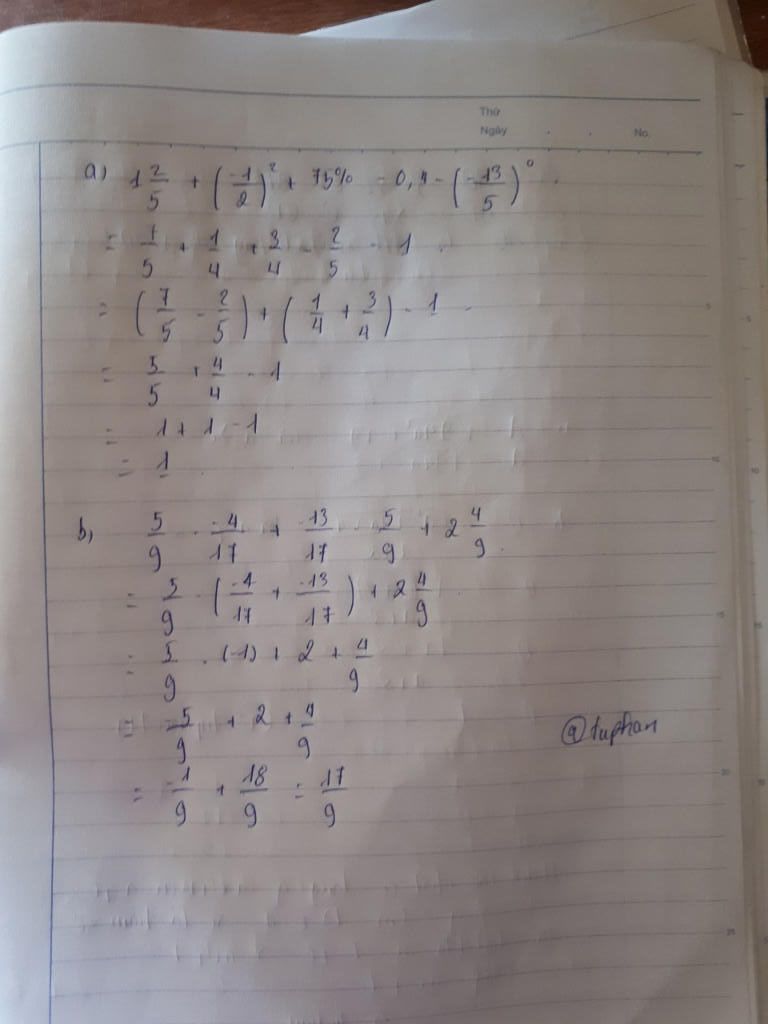 Thứ
Ngày . . No.
a) 1 2/5 + (-1/2)² + 75% - 0,4 - (-13/5)⁰ .
= 7/5 + 1/4 + 3/4 - 2/5 - 1 .
= (7/5 - 2/5) + (1/4 + 3/4) - 1
= 5/5 + 4/4 - 1
= 1 + 1 - 1
= 1 .
b, 5/9 . -4/17 + -13/17 . 5/9 + 2 4/9 .
= 5/9 . (-4/17 + -13/17) + 2 4/9 .
= 5/9 . (-1) + 2 + 4/9
= -5/9 + 2 + 4/9
= -1/9 + 18/9 = 17/9
@tuphan